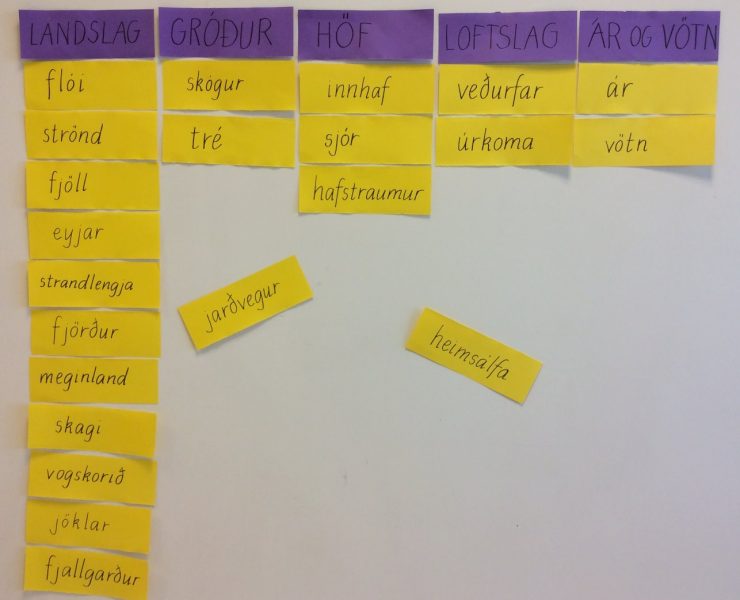 LANDSLAG
flói
strönd
fjöll
eyjar
strandlengja
fjörður
meginland
skagi
vogskorið
jöklar
fjallgarður
GRÓÐUR
skógur
tré
HÖF
innhaf
sjór
hafstraumur
LOFTSLAG
veðurfar
úrkoma
ÁR OG VÖTN
ár
vötn
jarðvegur
heimsálfa